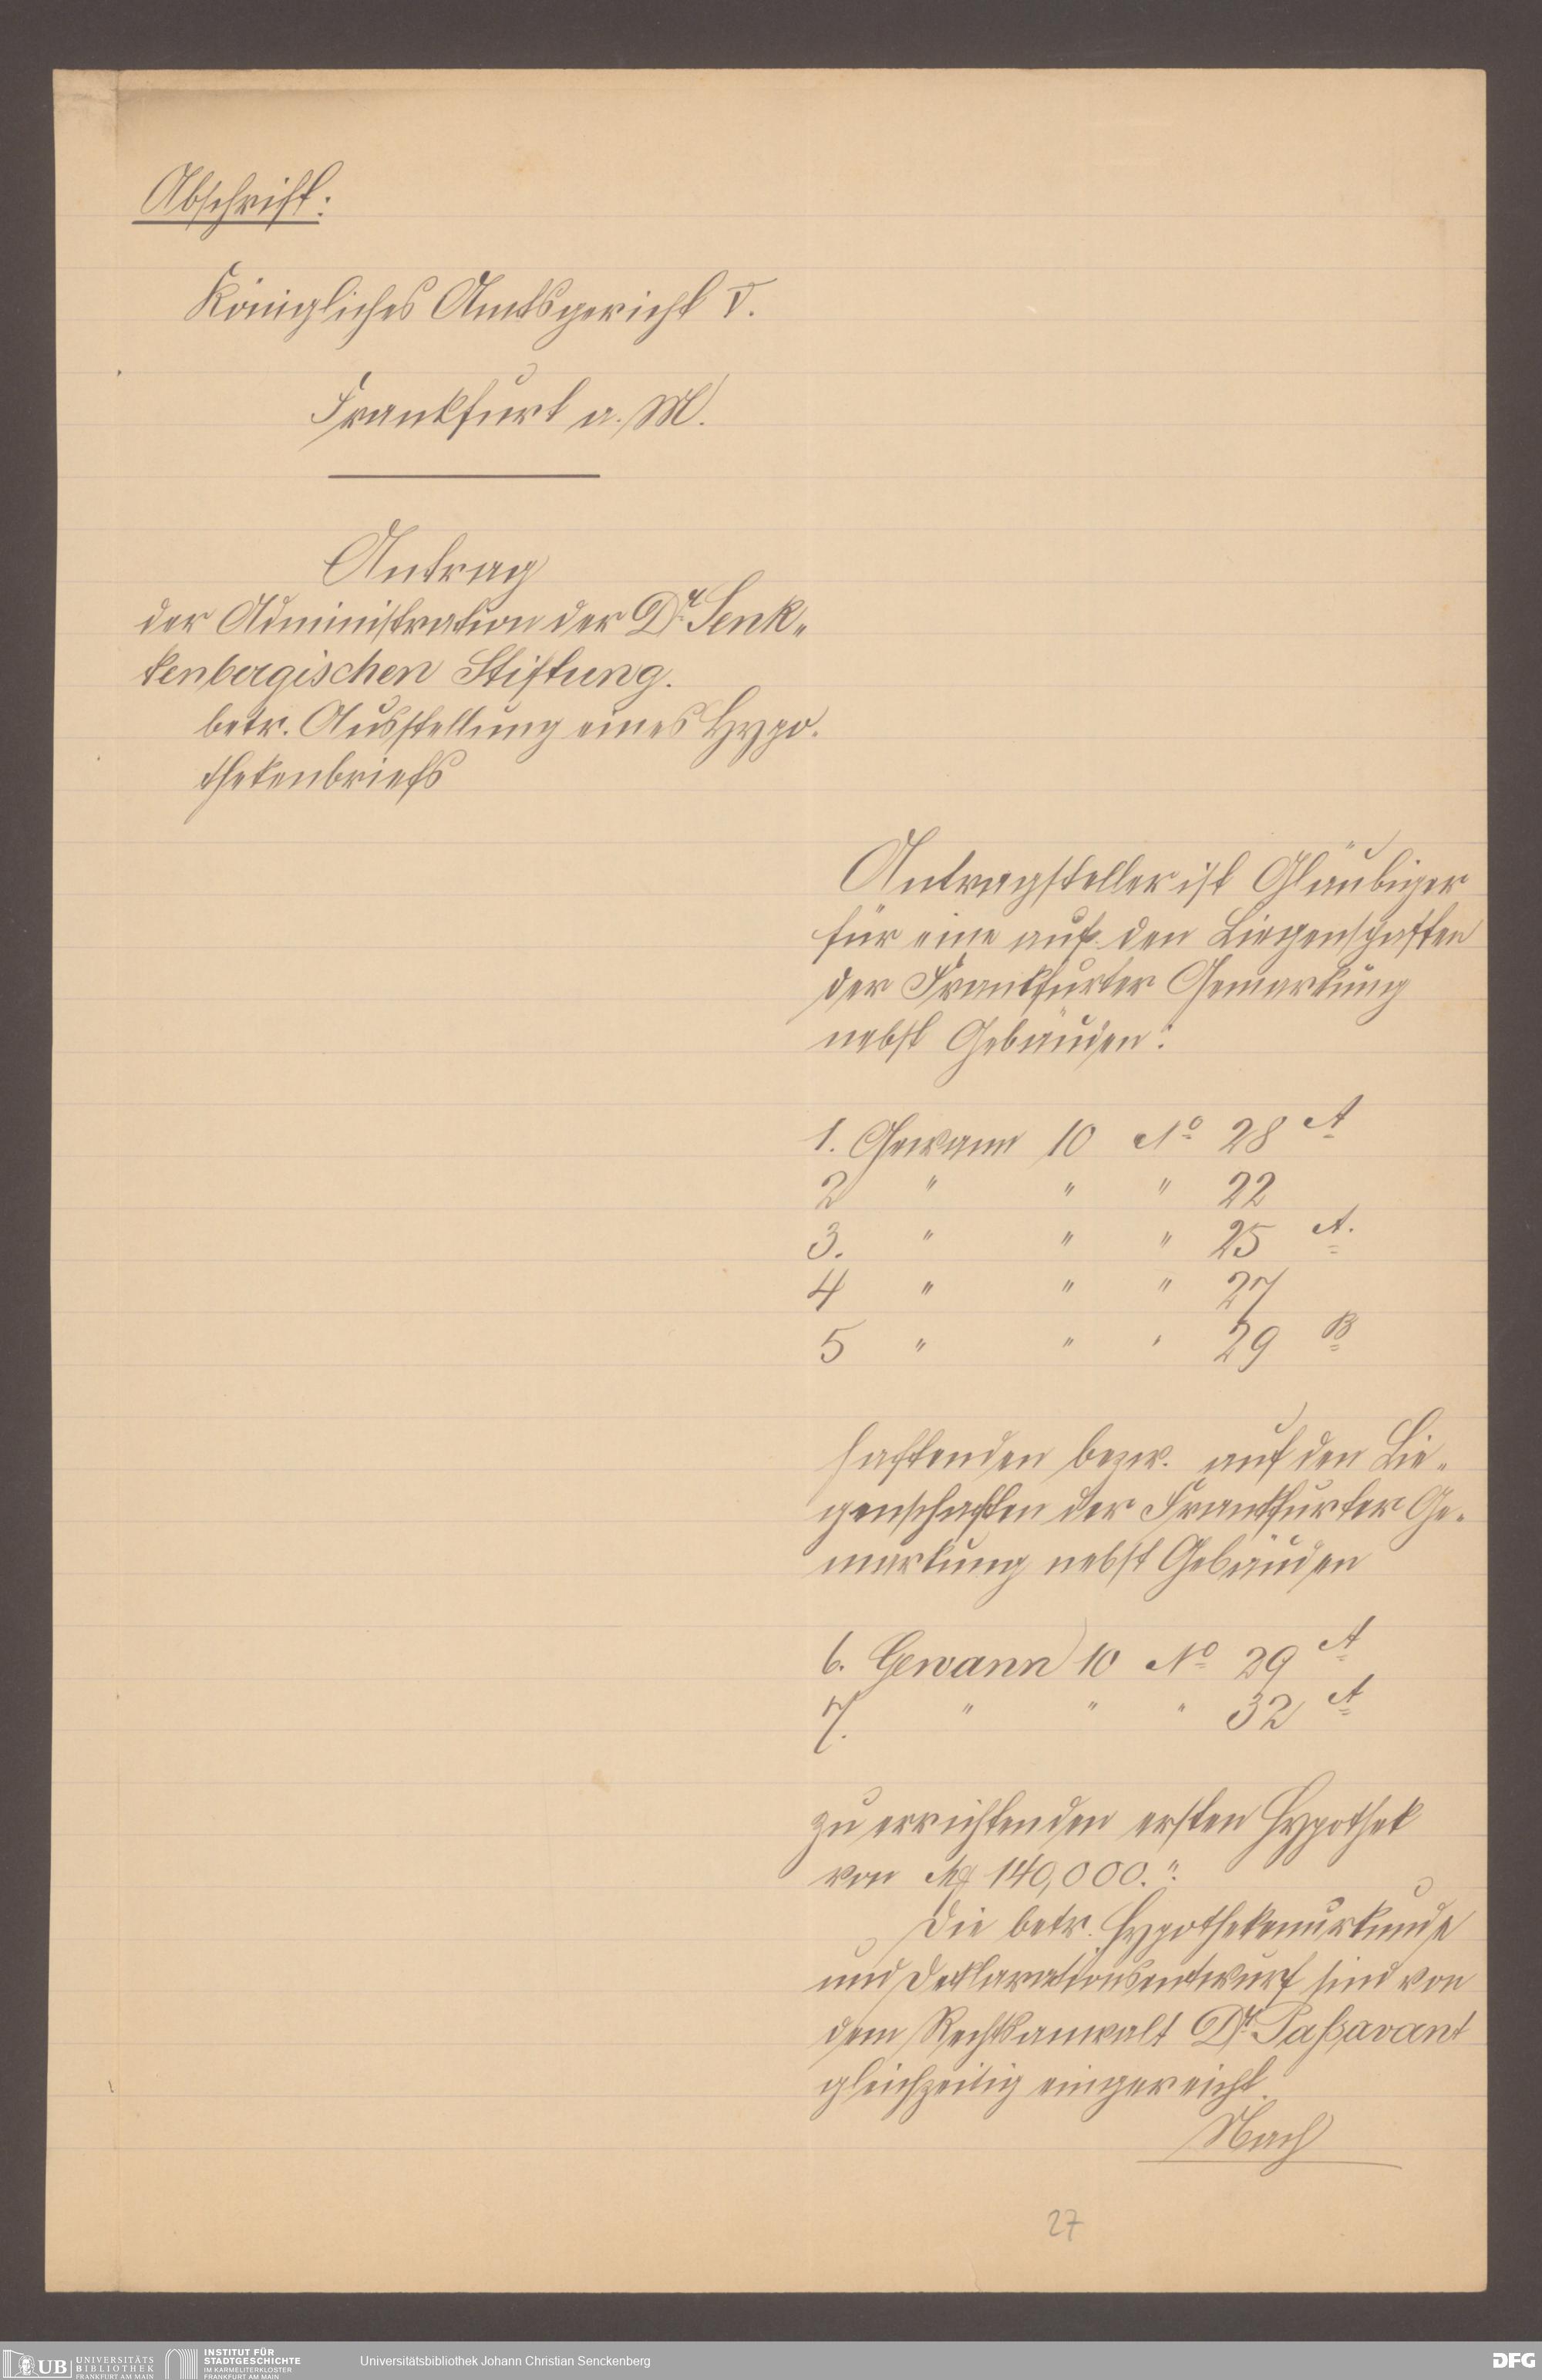 Abschrift:
Königliches Amtsgericht V.
Frankfurt a. M.
Antrag
der Administration der Dr. Senk„
kenbergischen Stiftung.
betr. Ausstellung eines Hypo.
thekenbriefs
Antragsteller ist Gläubiger
für eine auf den Liegenschaften
der Frankfurter Gemarkung
nebst Gebäuden:
1. Gewann 10 No 28 A
2 " " " 22
3. " " " 25 A.
4 " " " 27
5 " " " 29 B
haftenden bezw. auf den Lie„
genschaften der Frankfurter Ge„
markung nebst Gebäuden
6. Gewann 10 No 29 A
7. " " " 32 A
zu errichtenden ersten Hypothek
von M 140,000."
Die betr. Hypothekenurkunde
und Deklarationsentwurf sind von
dem Rechtsanwalt Dr. Paßavant
gleichzeitig eingereicht.
Nach
27
UB UNIVERSITÄTS
BIBLIOTHEK
FRANKFURT AM MAIN
INSTITUT FÜR
STADTGESCHICHTE
IM KARMELITERKLOSTER
FRANKFURT AM MAIN
Universitätsbibliothek Johann Christian Senckenberg
DFG